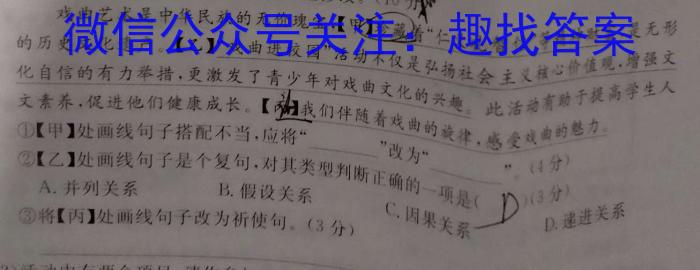 微信公众号关注：趣找答案
戏曲艺术是中华民族的无价瑰宝。【甲】
的历史
化自信的有力举措，更激发了青少年对戏曲文化的兴趣。此活动有助于提高学生人
曲进校园"活动不仅是弘扬社会主义核心价值观、增强文
文素养，促进他们健康成长。【丙】我们伴随着戏曲的旋律，感受戏曲的魅力。
①【甲】处画线句子搭配不当，应将"________"改为"________"。(4分)
②【乙】处画线句子是个复句，对其类型判断正确的一项是( D )(3分)
A. 并列关系 B. 假设关系 C. 因果关系 D. 递进关系
③将【丙】处画线句子改为祈使句。(3分)